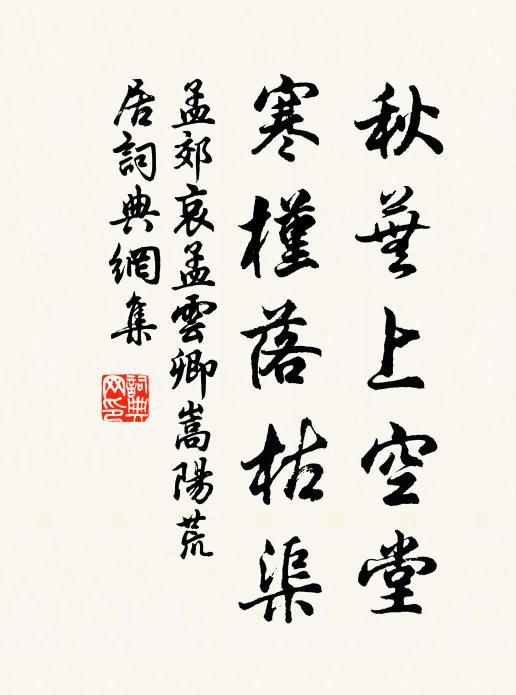 秋蕪上空堂
寒槿落枯渠
孟郊哀孟雲卿嵩陽荒
居詞典網集
詞典網印